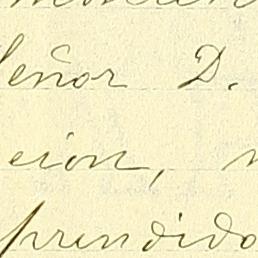 Señor D.
cion,
prendido